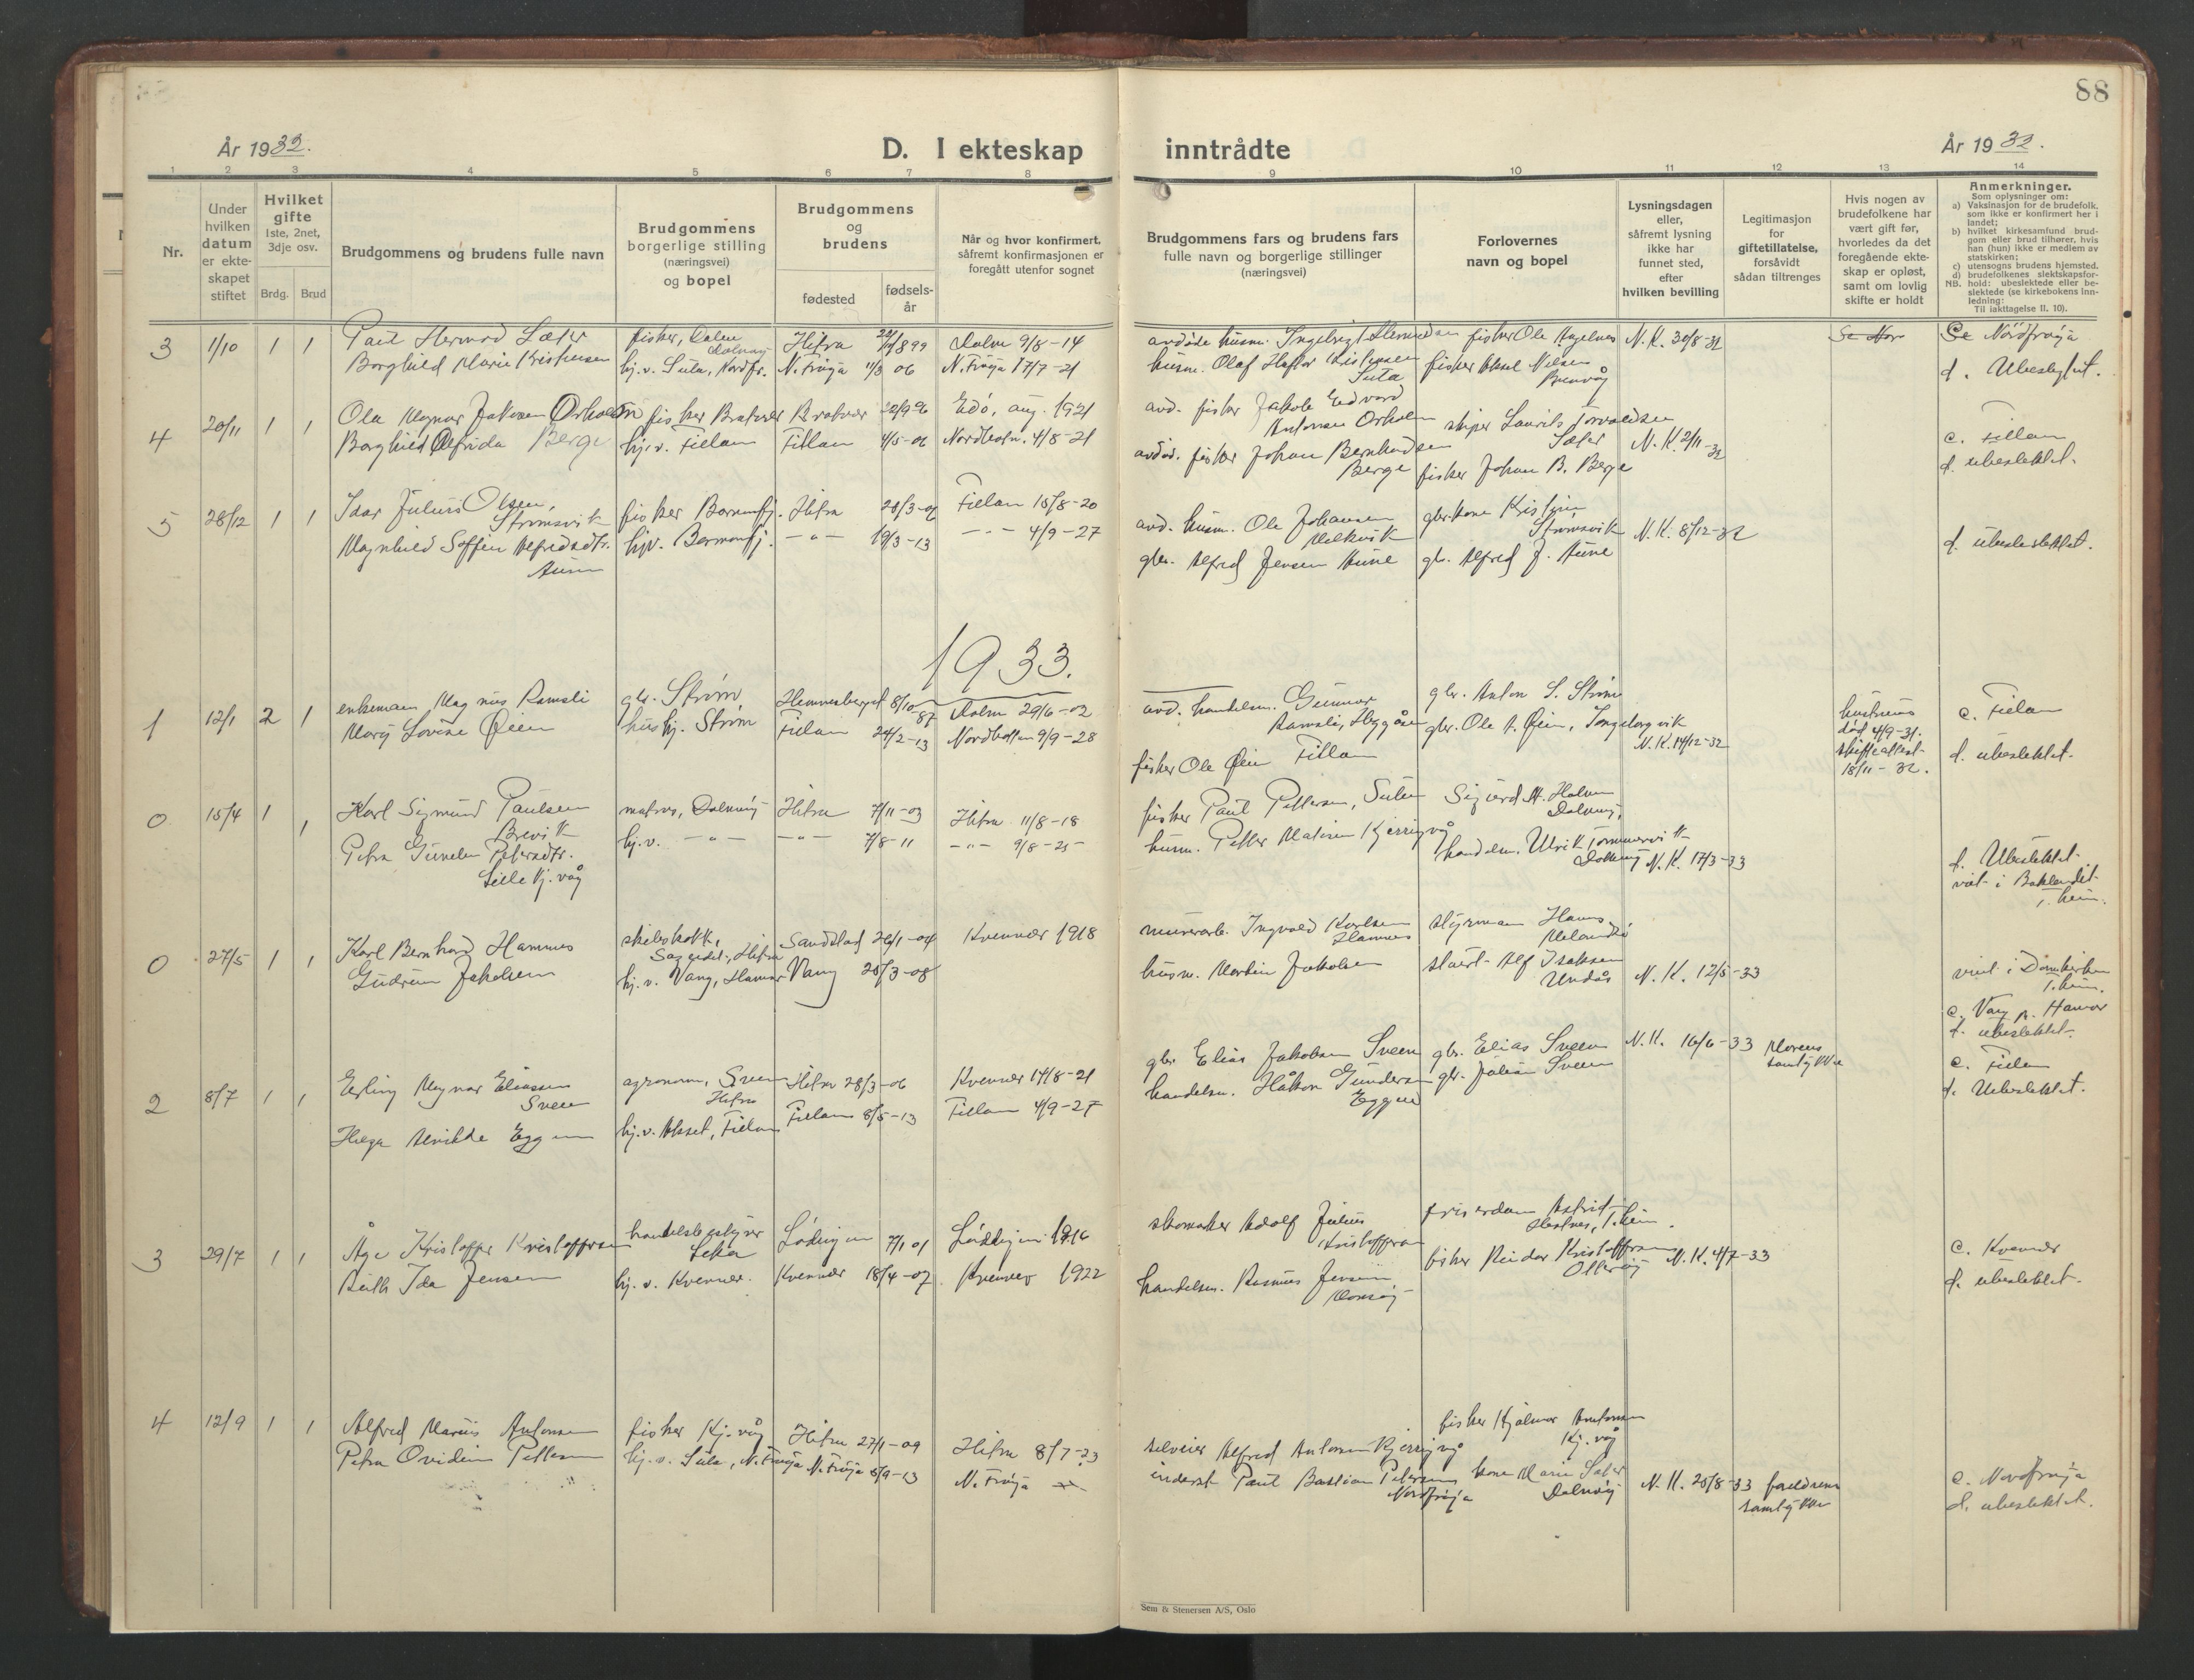 88
År 1932.
D. I ekteskap inntrådte
År 1932.
1 2 3 4 5 6 7 8 9 10 11 12 13 14
Nr.
Under hvilken datum er ekteskapet stiftet
Hvilket gifte
1ste, 2net, 3dje osv.
Brdg. Brud
Brudgommens og brudens fulle navn
Brudgommens borgerlige stilling (næringsvei) og bopel
Brudgommens og brudens
fødested
fødselsår
Når og hvor konfirmert, såfremt konfirmasjonen er foregått utenfor sognet
Brudgommens fars og brudens fars fulle navn og borgerlige stillinger (næringsvei)
Forlovernes navn og bopel
Lysningsdagen eller, såfremt lysning ikke har funnet sted, efter hvilken bevilling
Legitimasjon for giftetillatelse, forsåvidt sådan tiltrenges
Hvis nogen av brudefolkene har vært gift før, hvorledes da det foregående ekteskap er opløst, samt om lovlig skifte er holdt
Anmerkninger.
Som oplysninger om:
a) Vaksinasjon for de brudefolk, som ikke er konfirmert her i landet;
b) hvilket kirkesamfund brudgom eller brud tilhører, hvis han (hun) ikke er medlem av statskirken;
c) utensogns brudens hjemsted.
d) brudefolkenes slektskapsforhold: ubeslektede eller beslektede (se kirkebokens Innledning:
NB. Til iakttagelse II. 10).
3 1/10 1 1 Paul Hermod Sæter fisker, Dalen Dolmøy Hitra 1899 Dolm 9/8-14 avdøde husm. fisker Ole N. K. 30/8-32 Se Nordfrøya
Borghild Marie Kristensen hj.v. Sula, Nordfr. N. Frøya 06 N. Frøya 17/7-21 husm. Olaf Kristensen Sula fisker Aksel Nilsen d. Ubeslektet.
4 20/11 1 1 Ola Magnar Jakobsen Orholm fisker Bratvær Bratvær 22/9 96 Edø, aug. 1921 avd. fisker Jakob Edvard Antonsen Orholm skiper Laurits Torvaldsen Sæter c. Fillan
Borghild Alfrida Berge hj.v. Fillan Fillan 4/5-06 Nordbotn. 4/8-21 avdød. fisker Johan Bernhardsen Berge fisker Johan B. Berge N. K. 2/11-32 d. ubeslektet.
5 28/12 1 1 Idar Julius Olsen, Strømsvik fisker Barmanfj. Hitra 28/3-06 Fillan 15/8-20 avd. husm. Ole Johansen gbr.kone Kristine Strømsvik N. K. 8/12-32
Magnhild Soffie Alfredsdtr. Aune hj.v. Barmanfj. -"- 19/3-13 -"- 4/9-27 gbr. Alfred Jensen Aune gb. Alfred J. Aune d. ubeslektet.
1933.
1 12/1 2 1 enkemann Magnus Ramsli gbr. Strøm Hemnesberget 8/10-87 Dolm 29/6-02 avd. handelsm. Gunnar Ramsli, gbr. Anton S. Strøm hustruens død 4/9-31. skifteattest 18/11-32. c. Fillan
Mary Lovise Øien hushj. Strøm Fillan 24/2-13 Nordbotn 9/9-28 fisker Ole Øien Fillan gbr. Ole A. Øien, Ingeborgvik N. K. 14/12-32 d. ubeslektet.
0 15/4 1 1 Karl Sigmund Paulsen Brevik matros, Dolmøy Hitra 7/11-03 Hitra 11/8-18 fisker Paul Pettersen, Sigurd M. Holm Dolmøy,
Petra Peteradtr. Lille Kj.våg hj.v. -"- -"- 7/8-11 -"- 9/8-25 husm. Petter Kjerringvåg handelsm. Ulrik Tømmervik Dolmøy N. K. 17/3-33 d. Ubeslektet. viet i Baklandet T.heim.
0 27/5 1 1 Karl Bernhard Hammer Hitra Sandstad 26/1-04 Kvenvær 1918 murerarb. Ingvald Karlsen Hamnes styrman Hans Melandsø
Gudrun Jakobsen hj.v. Vang, Hamar Vang 25/3-08 husm. Martin Jakobsen Alf Isaksen Undås N. K. 12/5-33 viet i Domkirken T.heim. c. Vang p. Hamar d. ubeslektet.
2 8/7 1 1 Erling Magnar Eliassen Sveen agronom, Sveen Hitra Hitra 28/3-06 Kvenvær 14/8-21 gbr. Elias Jakobsen Sveen gbr. Elias Sveen N. K. 16/6-33 samtykke c. Fillan
Helga Alvilde Eggen hj.v. Akset, Fillan Fillan 8/5-13 Fillan 4/9-27 handelsm. Håkon Gundersen Eggen gbr. Julian Sveen d. Ubeslektet.
3 29/7 1 1 Åge Kristoffer Kristoffersen handelsbestyrer Leka Lødingen 7/1 01 Lødingen 1916 skomaker Adolf Julius Kristoffersen Astrid T.heim. c. Kvenvær
Ruth Ida Jensen hj.v. Kvenvær. Kvenvær 18/4-07 Kvenvær 1922 handelsm. Rasmus Jensen fisker Reidar Kristoffersen N. K. 4/7-33 d. ubeslektet.
4 12/9 1 1 Alfred Marius Antonsen fisker Kj.våg Hitra 27/1-09 Hitra 8/7-23 Alfred Antonsen Kjerringvåg fisker Hjalmar Antonsen Kj.våg
Petra Ovidie Pettersen hj.v. Sula, N. Frøya N. Frøya 5/9-13 N. Frøya inderst Paul Bastian Petersen Nordfrøya kone Marie Sæter Dolmøy N. K. 25/8-33 foreldrenes samtykke c. Nordfrøya d. ubeslektet.
Sem & Stenersen A/S, Oslo